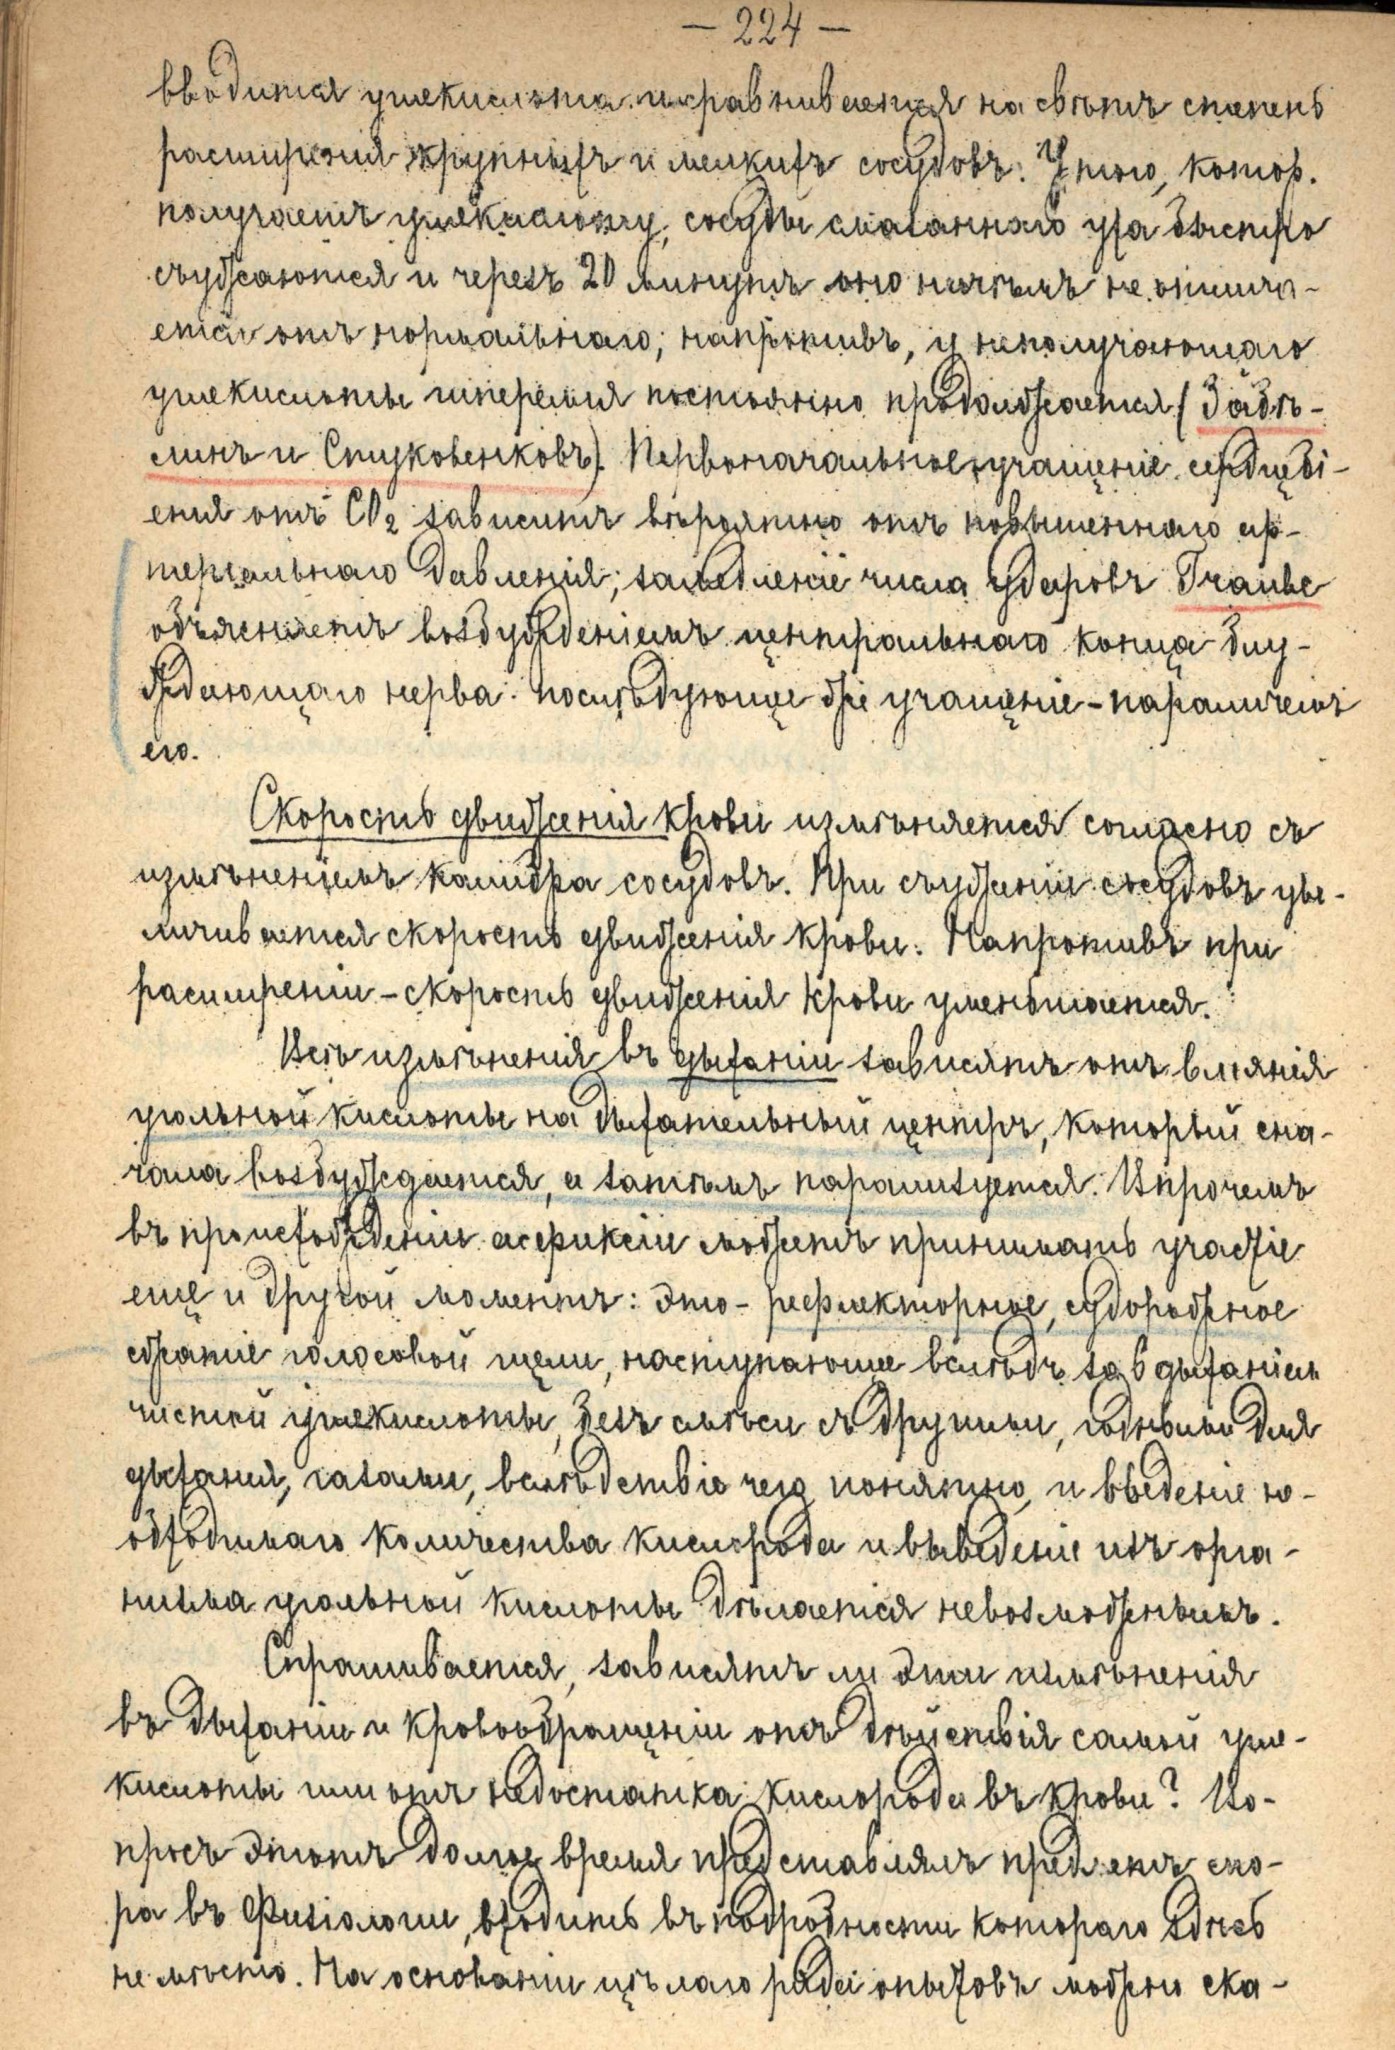 — 224 —
вводится углекислота и сравнивается на свѣтъ степень
расширенія крупныхъ и мелкихъ сосудовъ. У того, котор.
получаетъ углекислоту, сосуды смазаннаго уха быстро
съуживаются и черезъ 20 минутъ оно ничѣмъ не отлича-
ется отъ нормальнаго; напротивъ, у неполучающаго
углекислоты гиперемія постоянно продолжается (Забѣ-
линъ и Стуковенковъ). Первоначальное учащеніе сердцебі-
енія отъ CO2 зависитъ вѣроятно отъ повышеннаго ар-
теріальнаго давленія; замедленіе числа ударовъ Траубе
объясняетъ возбужденіемъ центральнаго конца блу-
ждающаго нерва. послѣдующее же учащеніе - параличемъ
его.
Скорость движенія крови измѣняется согласно съ
измѣненіемъ калибра сосудовъ. При съуженіи сосудовъ уве-
личивается скорость движенія крови. Напротивъ при
расширеніи - скорость движенія крови уменьшается.
Всѣ измѣненія въ дыханіи зависятъ отъ вліянія
угольной кислоты на дыхательный центръ, который сна-
чала возбуждается, а затѣмъ парализуется. Впрочемъ
въ происхожденіи асфиксіи можетъ принимать участіе
еще и другой моментъ: это - рефлекторное, судорожное
сжатіе голосовой щели, наступающее вслѣдъ за вдыханіемъ
чистой углекислоты, безъ смѣси съ другими, годными для
дыханія, газами, вслѣдствіе чего, понятно, и введеніе не-
обходимаго количества кислорода и выведеніе изъ орга-
низма угольной кислоты дѣлается невозможнымъ.
Спрашивается, зависятъ ли эти измѣненія
въ дыханіи и кровообращеніи отъ дѣйствія самой угле-
кислоты или отъ недостатка кислорода въ крови? Во-
просъ этотъ долгое время представлялъ предметъ спо-
ра въ физіологіи, входить въ подробности котораго здѣсь
не мѣсто. На основаніи цѣлаго ряда опытовъ можно ска-